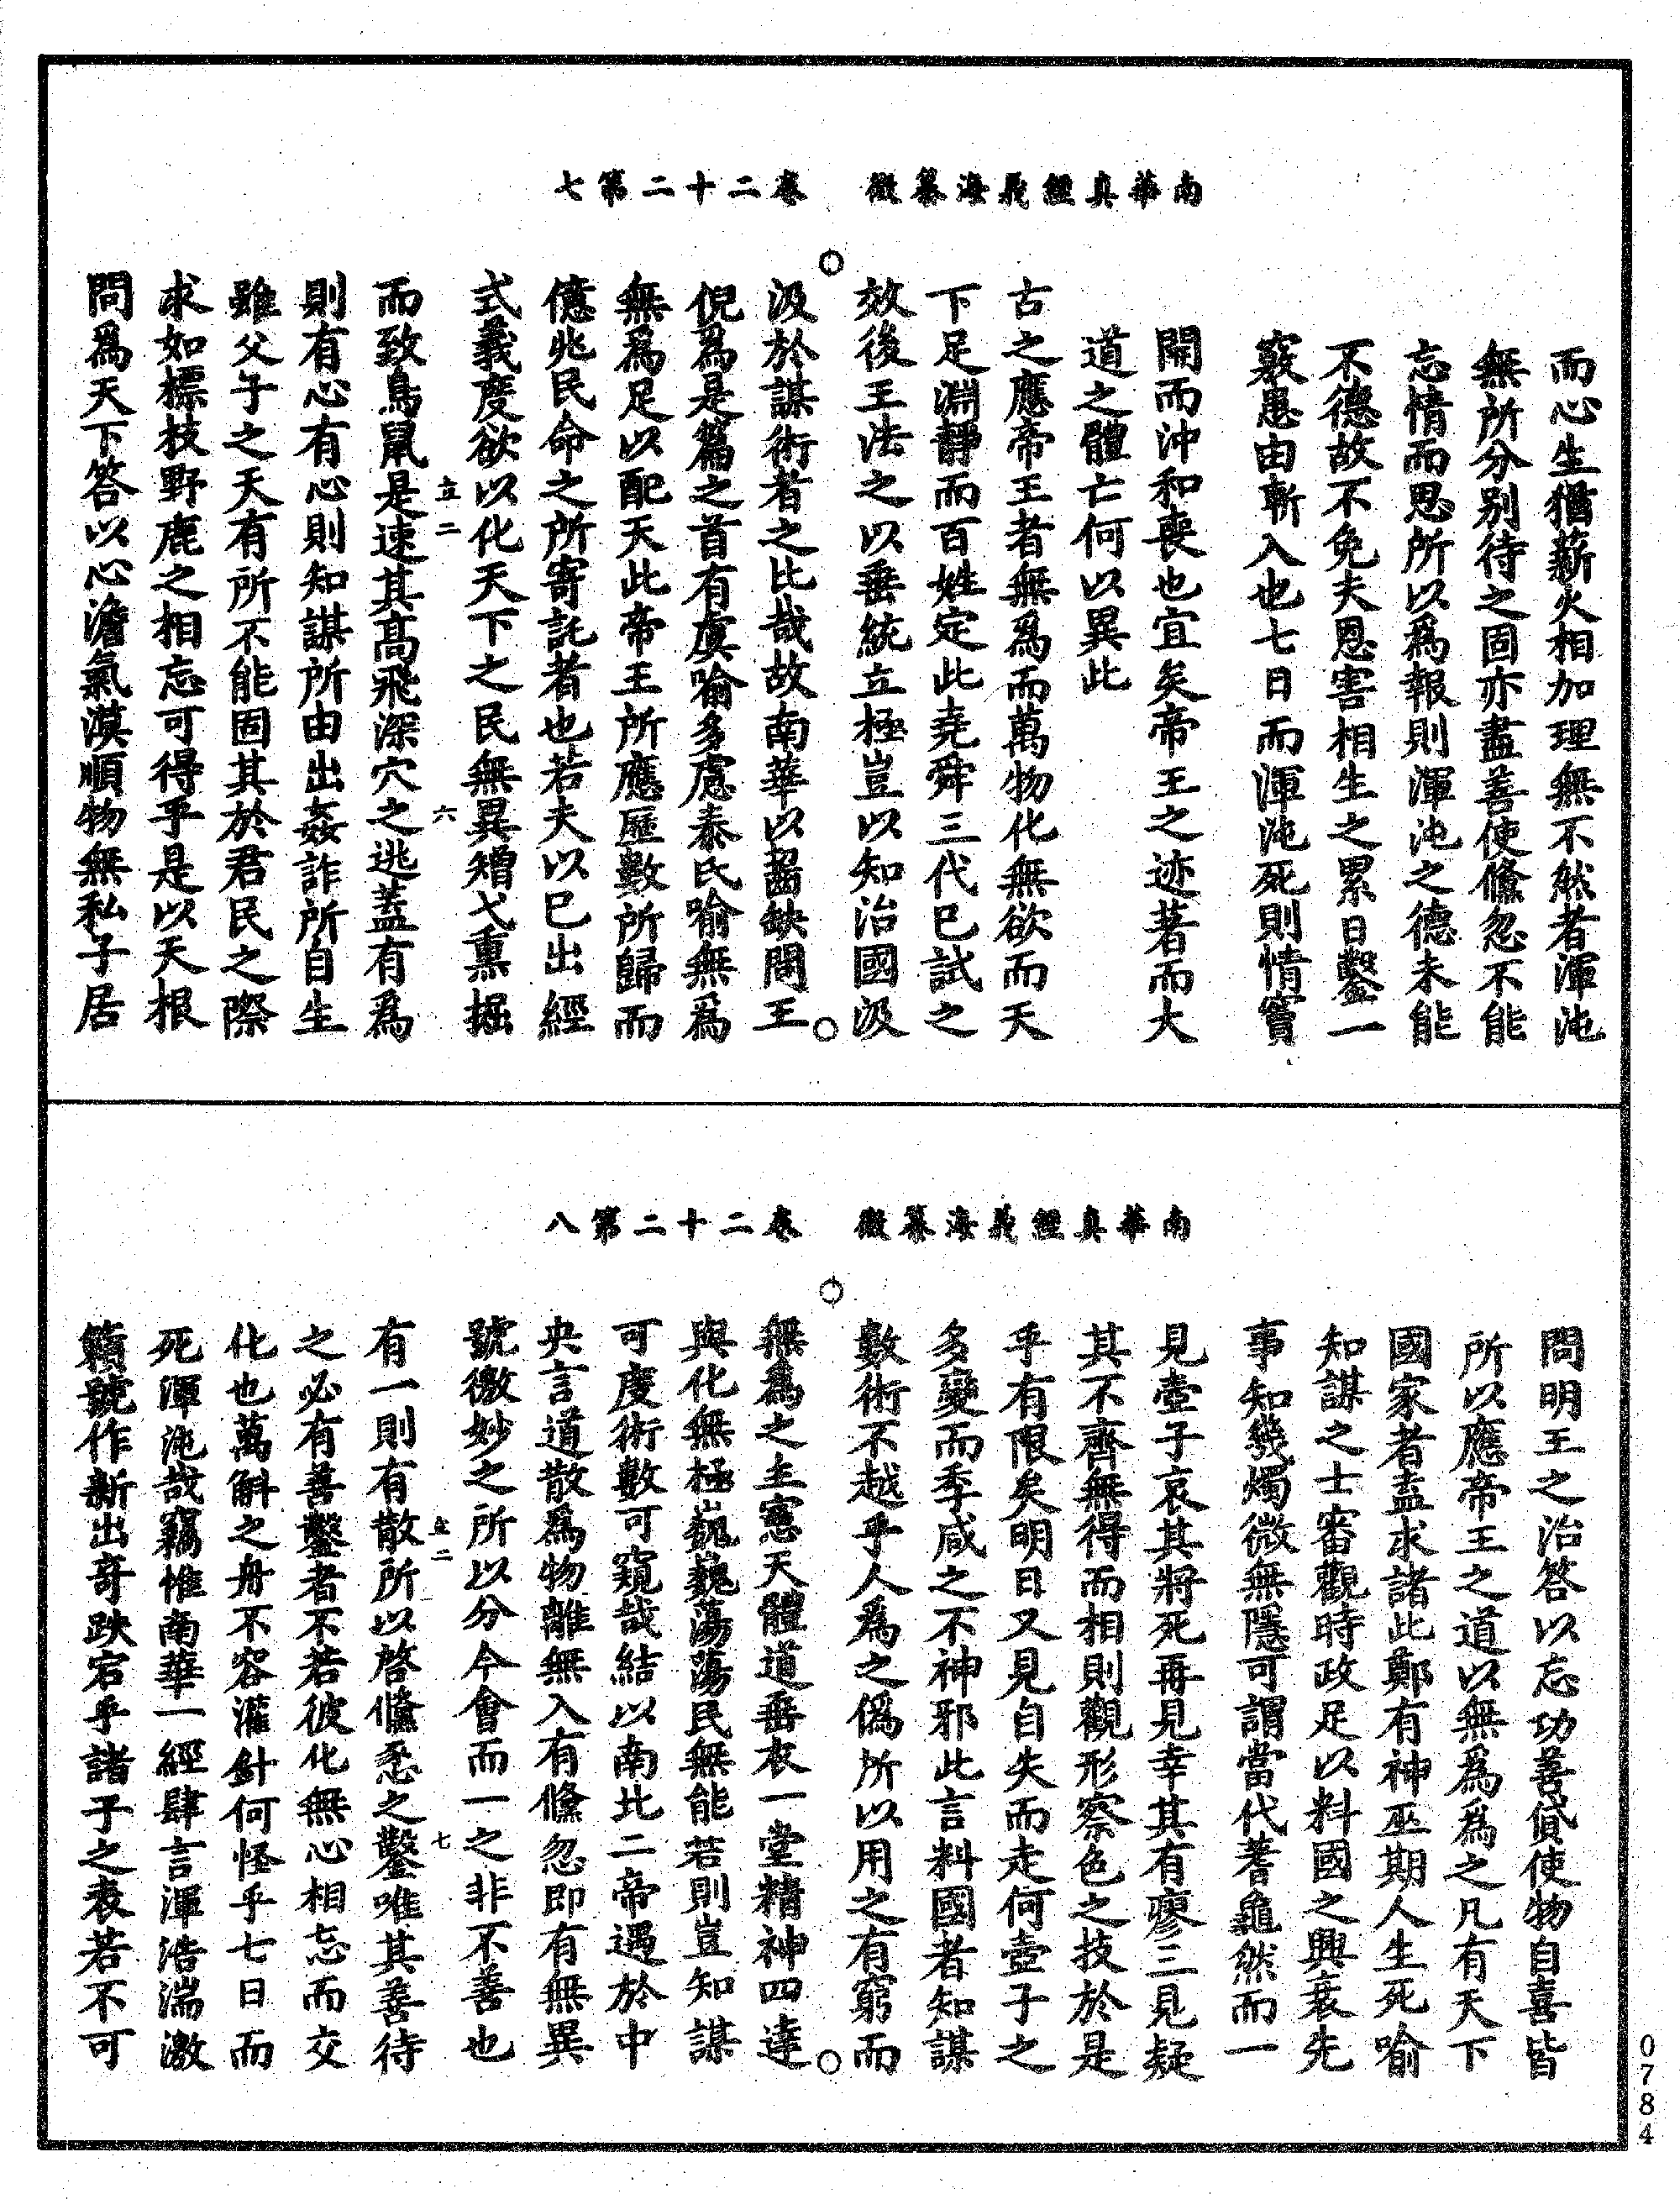 南華真經義海纂微　卷二十二第七
而心生猶薪火相加理無不然者渾沌
無所分别待之固亦盡善使儵忽不能
忘情而思所以為報則渾沌之德未能
不德故不免夫恩害相生之累日鑿一
竅愚由斬入也七日而渾沌死則情竇
開而沖和喪也宜矣帝王之迹著而大
道之體亡何以異此
古之應帝王者無為而萬物化無欲而天
下足淵靜而百姓定此堯舜三代已試之
效後王法之以垂統立極豈以知治國汲
汲於謀術者之比哉故南華以齧缺問王
倪為是篇之首有虞喻多慮泰氏喻無為
無為足以配天此帝王所應歷數所歸而
億兆民命之所寄託者也若夫以已出經
式義度欲以化天下之民無異矰弋熏掘
立二　六
而致鳥鼠是速其高飛深穴之逃蓋有為
則有心有心則知謀所由出姦詐所自生
雖父子之天有所不能固其於君民之際
求如標枝野鹿之相忘可得乎是以天根
問為天下答以心澹氣漠順物無私子居
南華真經義海纂微　卷二十二第八
問明王之治答以忘功善貸使物自喜皆
所以應帝王之道以無為為之凡有天下
國家者盍求諸此鄭有神巫期人生死喻
知謀之士審觀時政足以料國之興衰先
事知幾燭微無隱可謂當代蓍龜然而一
見壺子哀其將死再見幸其有瘳三見疑
其不齊無得而相則觀形察色之技於是
乎有限矣明日又見自失而走何壺子之
多變而季咸之不神邪此言料國者知謀
數術不越乎人為之偽所以用之有窮而
無為之主憲天體道垂衣一堂精神四達
與化無極巍巍蕩蕩民無能若則豈知謀
可度術數可窺哉結以南北二帝遇於中
央言道散為物離無入有儵忽即有無異
號微妙之所以分今會而一之非不善也
立二　七
有一則有散所以啓儵忽之鑿唯其善待
之必有善鑿者不若彼化無心相忘而交
化也萬斛之舟不容灌針何怪乎七日而
死渾沌哉竊惟南華一經肆言渾浩湍激
籟號作新出奇跌宕乎諸子之表若不可
0784